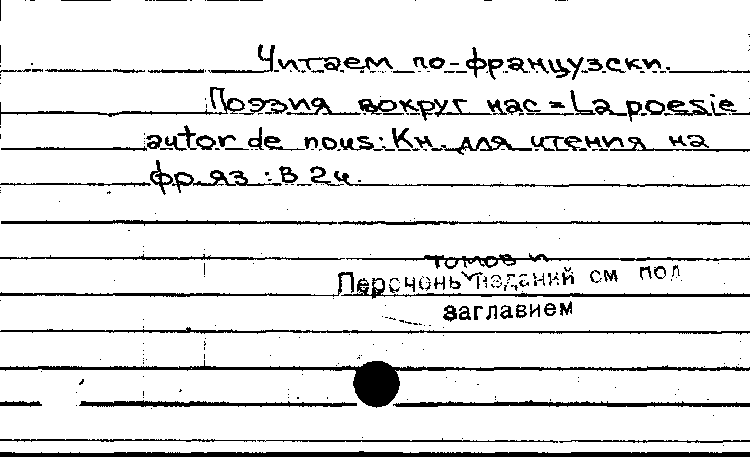 Читаем по-французски.
Поэзия вокруг нас = La poesie
autor de nous: Кн. для чтения на
фр. яз.: В 2ч.
томов и
Перечень изданий см под
заглавием